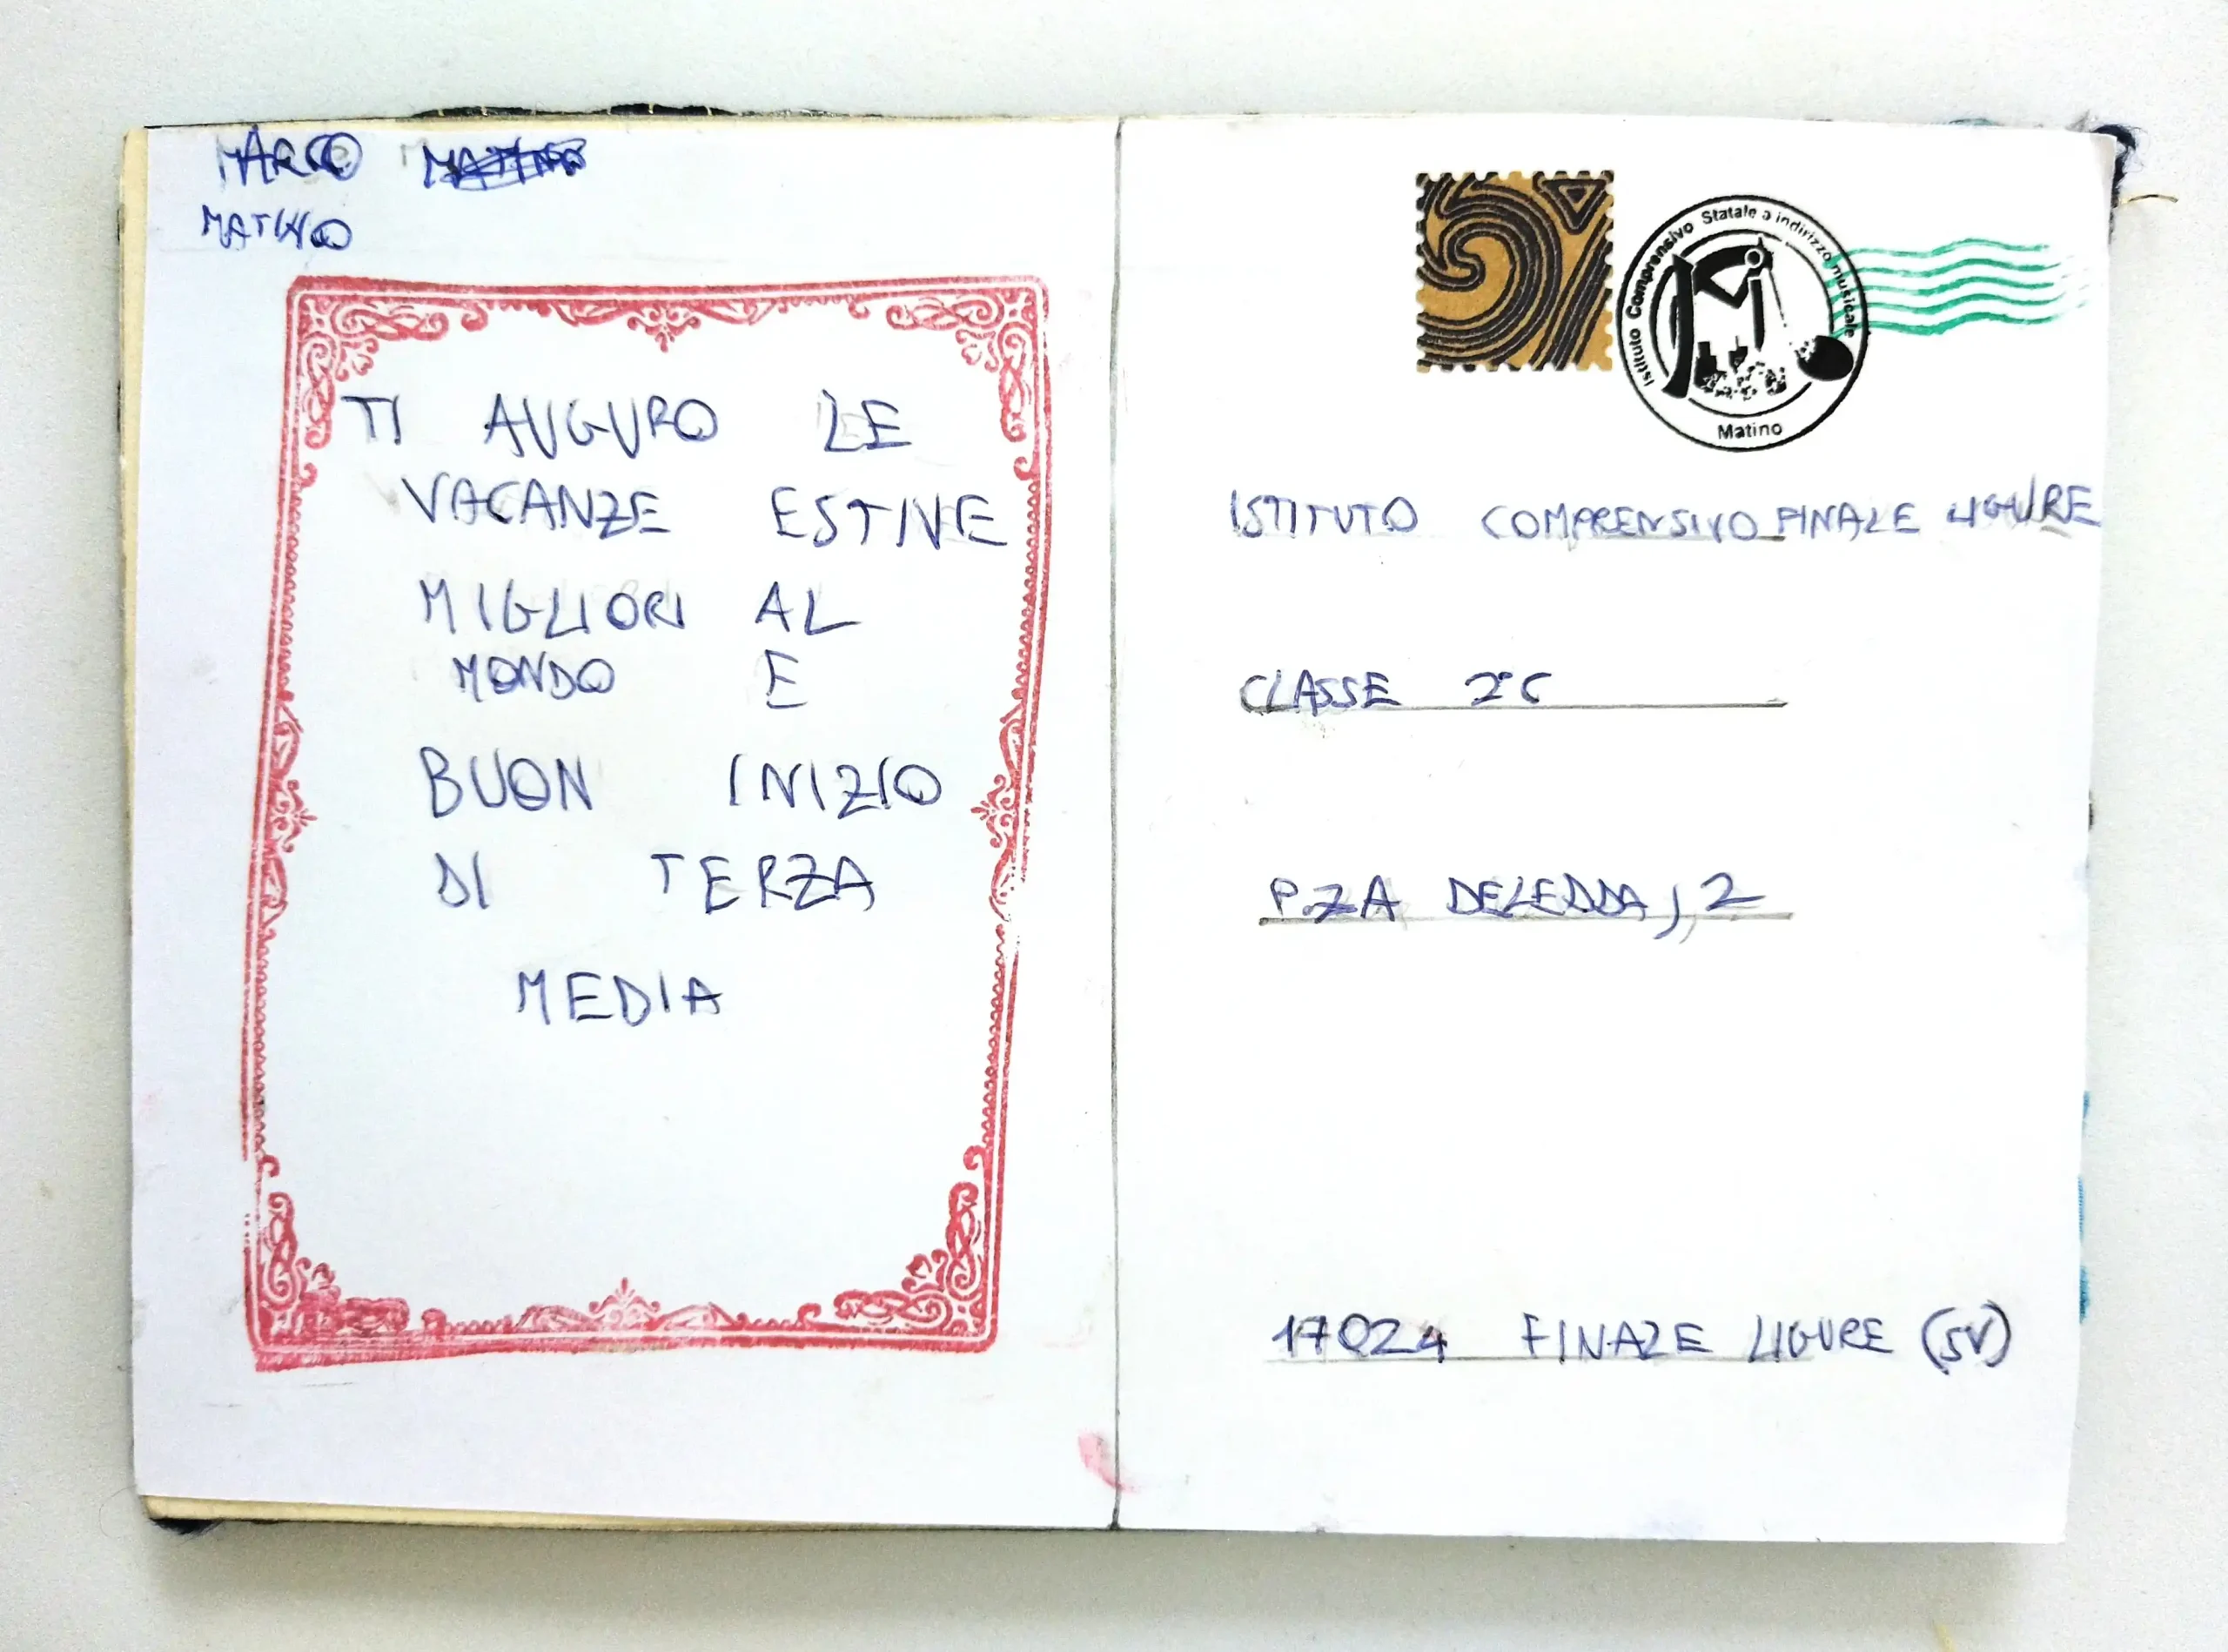 MARCO
MATINO
TI AUGURO LE
VACANZE ESTIVE
MIGLIORI AL
MONDO E
BUON INIZIO
DI TERZA
MEDIA
Istituto Comprensivo Statale a indirizzo musicale
Matino
ISTITUTO COMPRENSIVO FINALE LIGURE
CLASSE 2°C
P.ZA DELEDDA, 2
17024 FINALE LIGURE (SV)